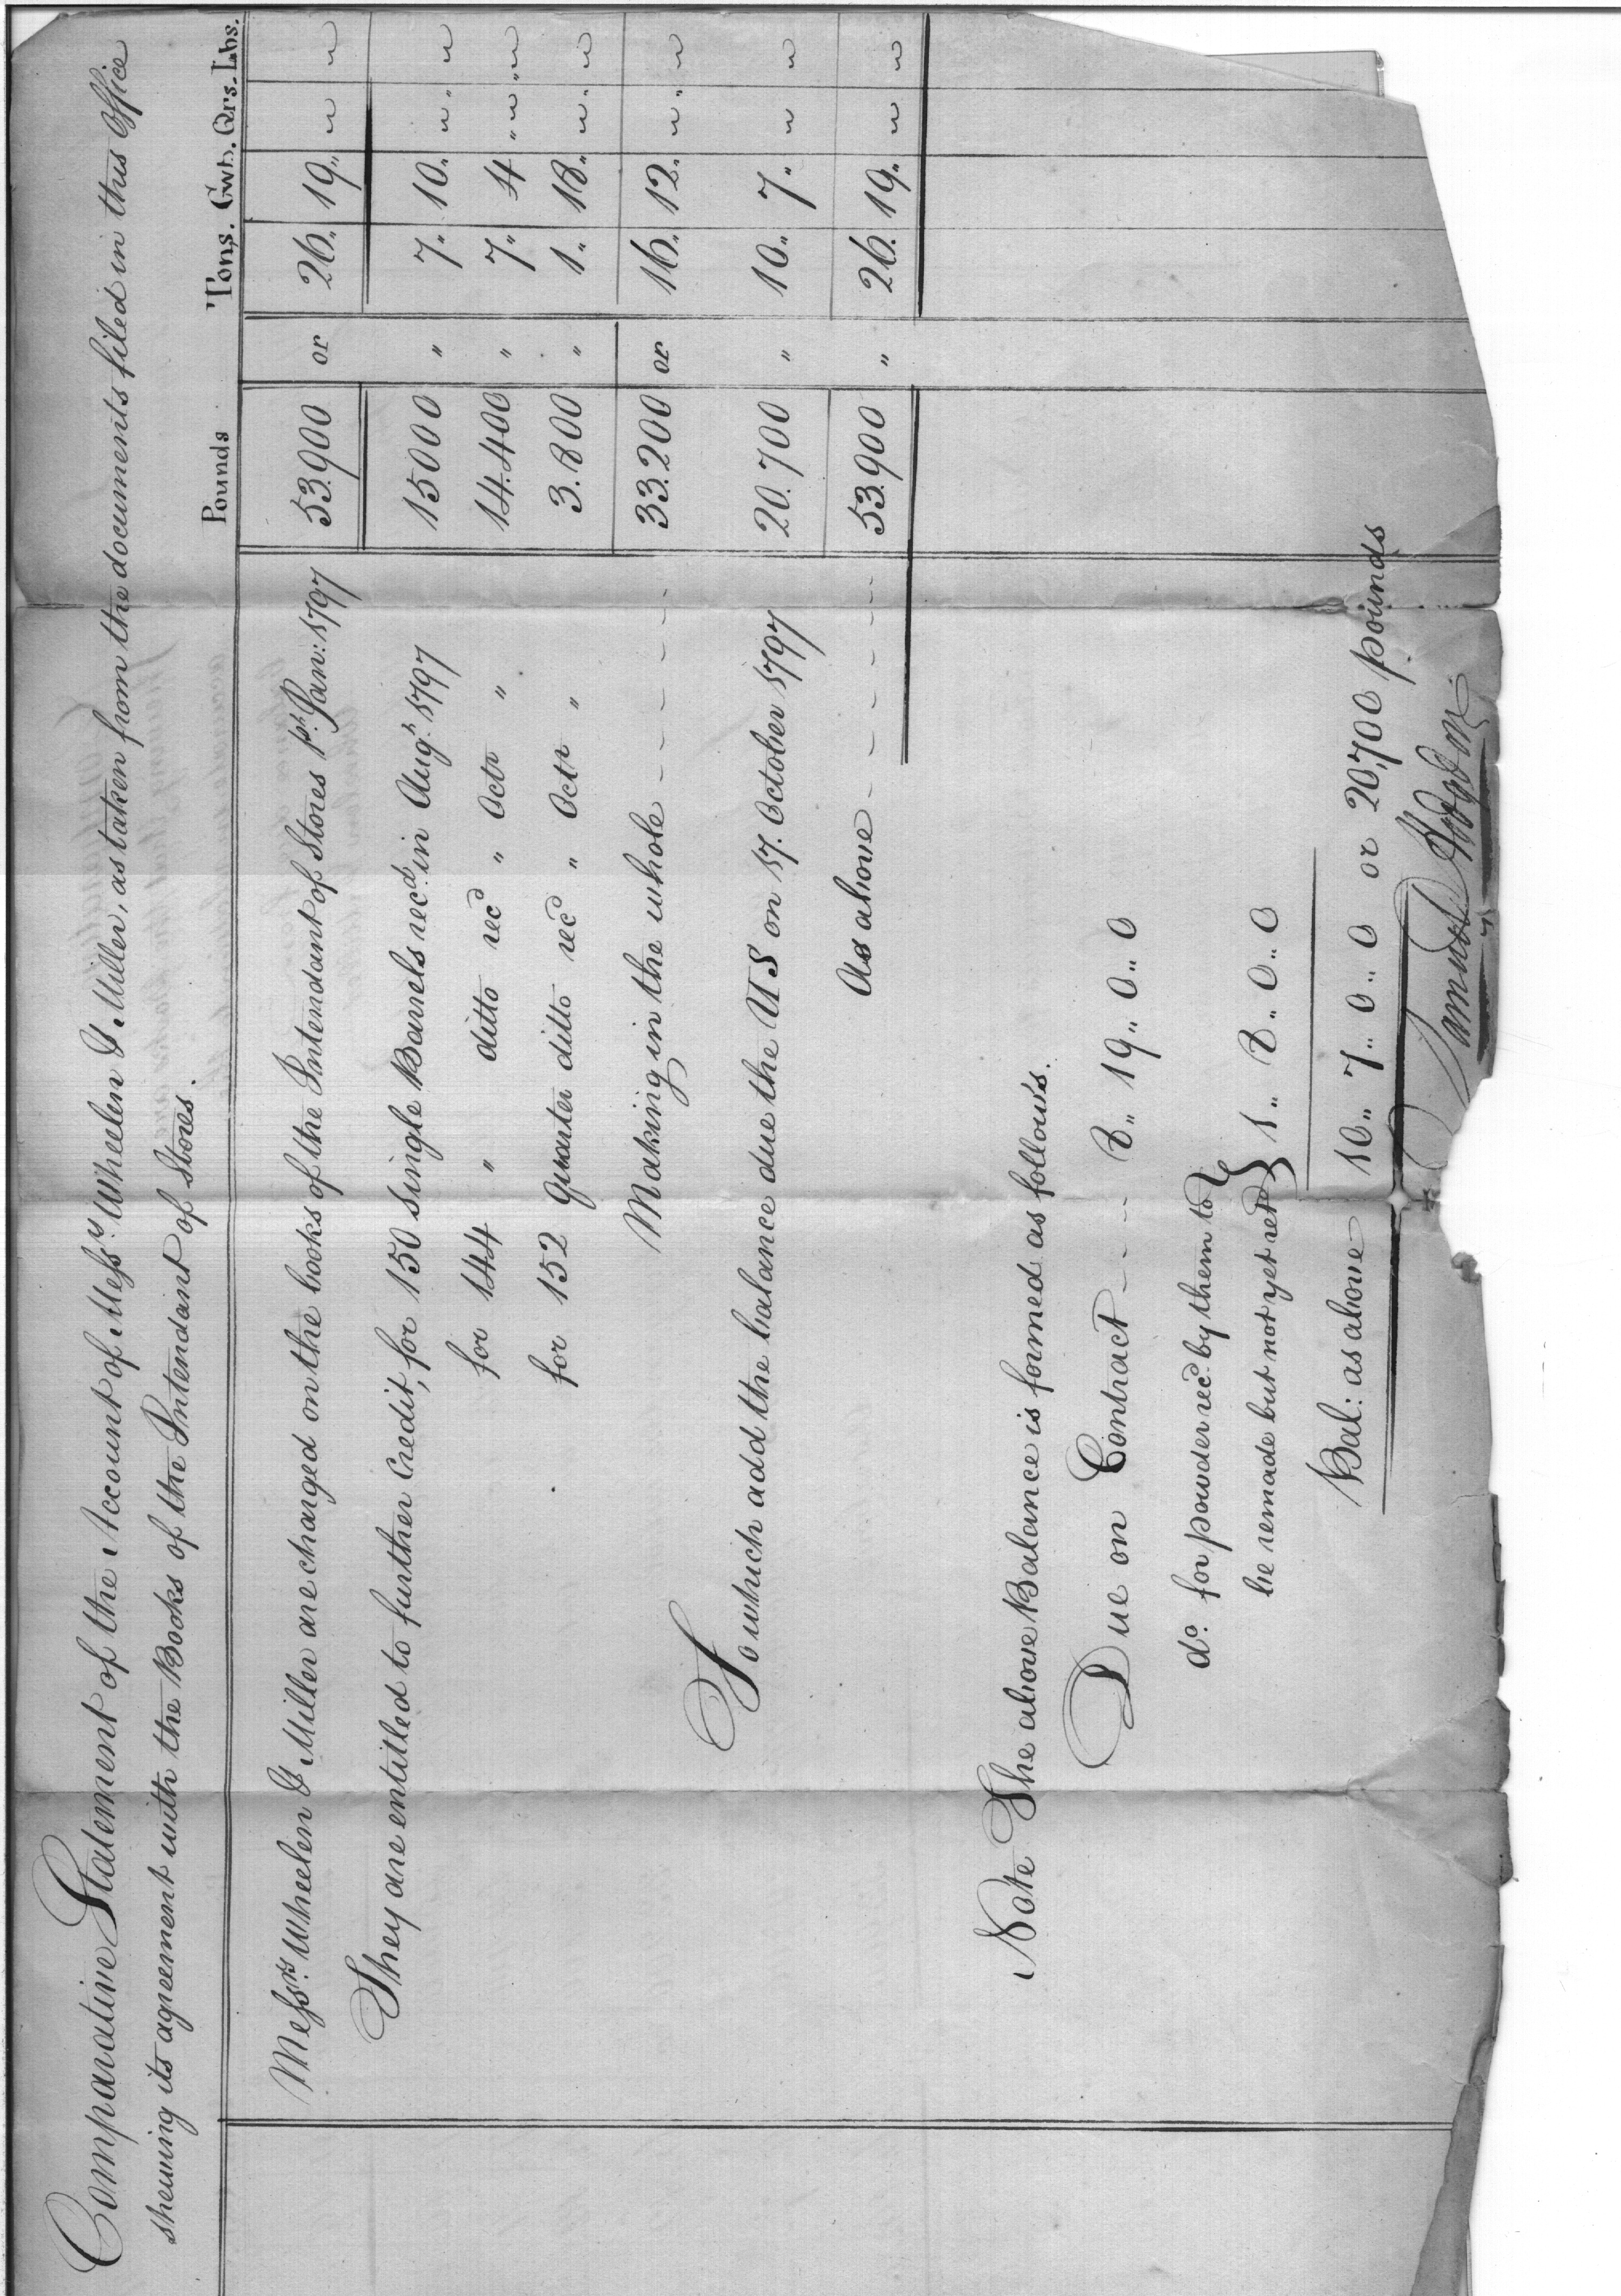 Comparative Statement of the Account of Messrs Wheelen & Miller, as taken from the documents filed in this Office
shewing its agreement with the Books of the Intendant of Stores.
Pounds Tons. Cwt. Qrs. Lbs.
Messrs. Wheelen & Miller are charged on the books of the Intendant of Stores 1st. Jan: 1797 53.900 or 26,, 19,, " "
They are entitled to further Credit, for 150 single Barrels recd. in Augt. 1797 15000 " 7,, 10,, " "
for 144 " ditto recd " Octr " 14.400 " 7,, 4,, " "
for 152 quarter ditto recd " Octr " 3.800 " 1,, 18,, " "
Making in the whole - - - - 33.200 or 16,, 12,, " "
To which add the balance due the US on 17. October 1797 20.700 " 10,, 7,, " "
As above - - - - - 53.900 " 26,, 19,, " "
Note The above Balance is formed as follows.
Due on Contract - - - 8,, 19,, 0,, 0
do. for powder recd. by them to
be remade but not yet retd } 1,, 8,, 0,, 0
Bal: as above 10,, 7,, 0,, 0 or 20,700 pounds
Samuel Hodgdon